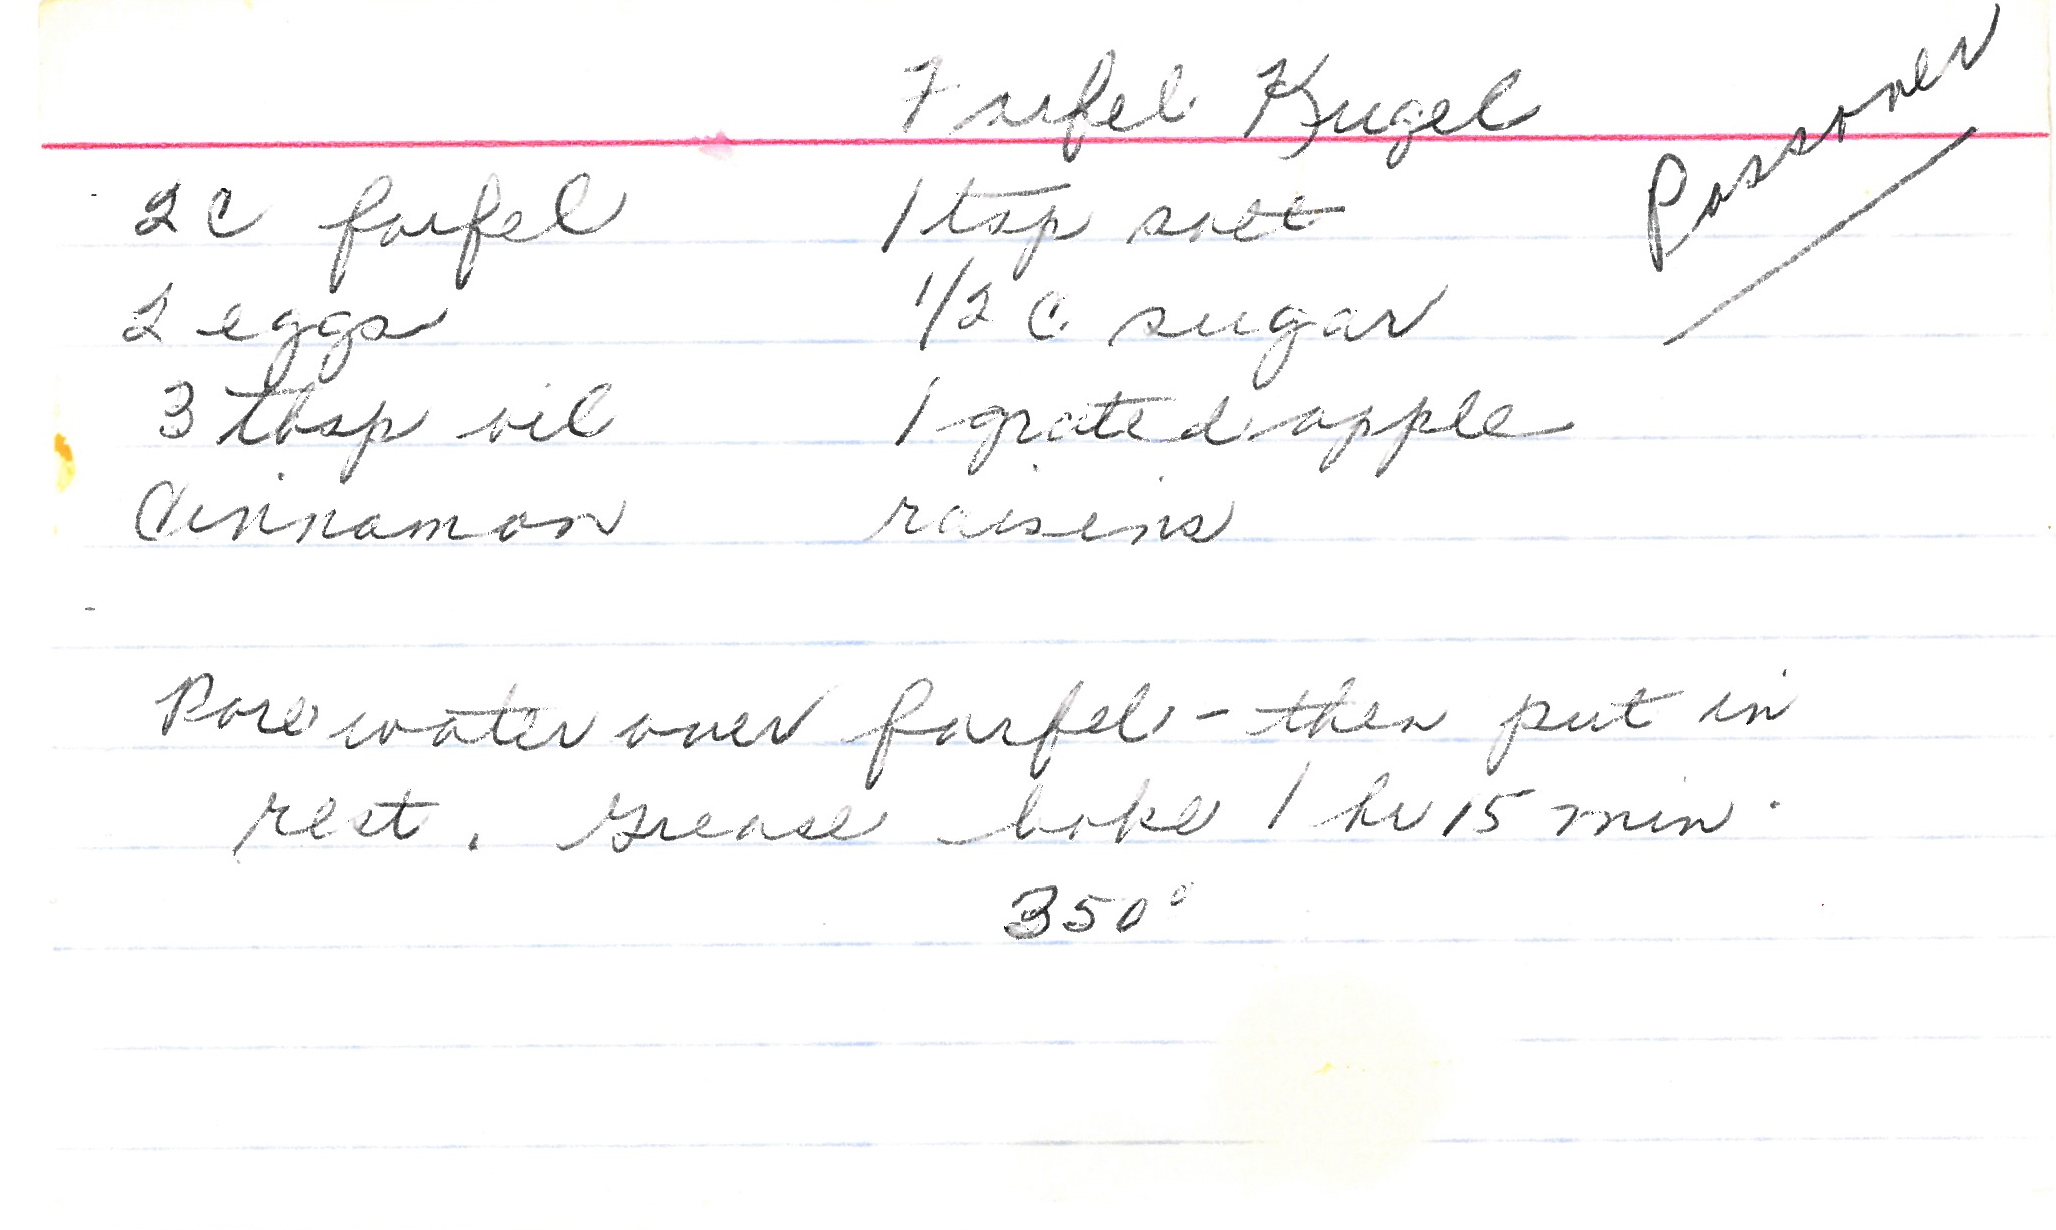 Farfel Kugel
Passover
2 c farfel 1 tsp salt
2 eggs 1/2 c. sugar
3 tbsp oil 1 grated apple
Cinnamon raisins
Pore water over farfel - then put in
rest. Grease bake 1 hr 15 min.
350°